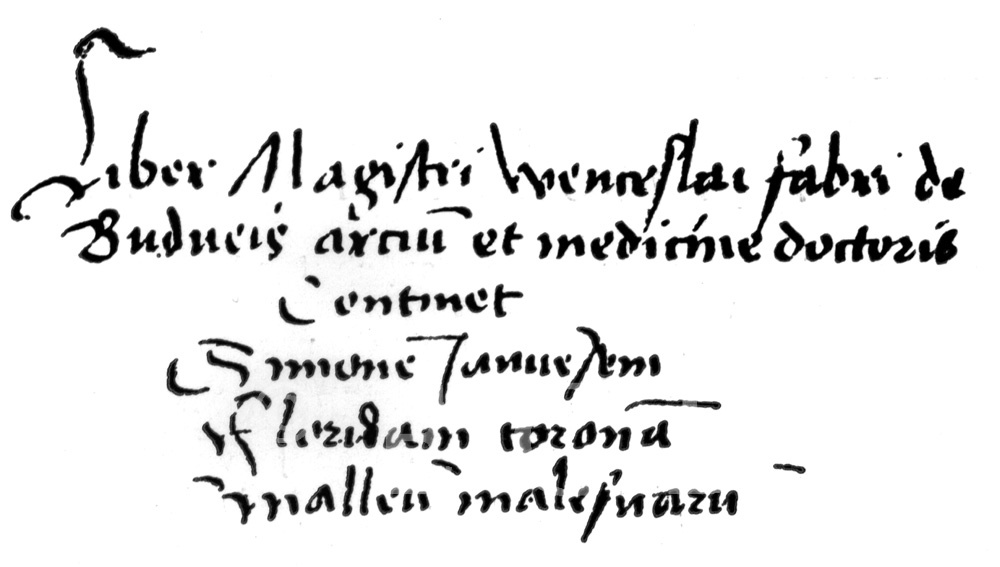 Liber Magistri Wenceslai fabri de
Budueis arciū et medicine doctoris
Continet
Simonē Januēsem
Floridam coronā
malleū maleficarū